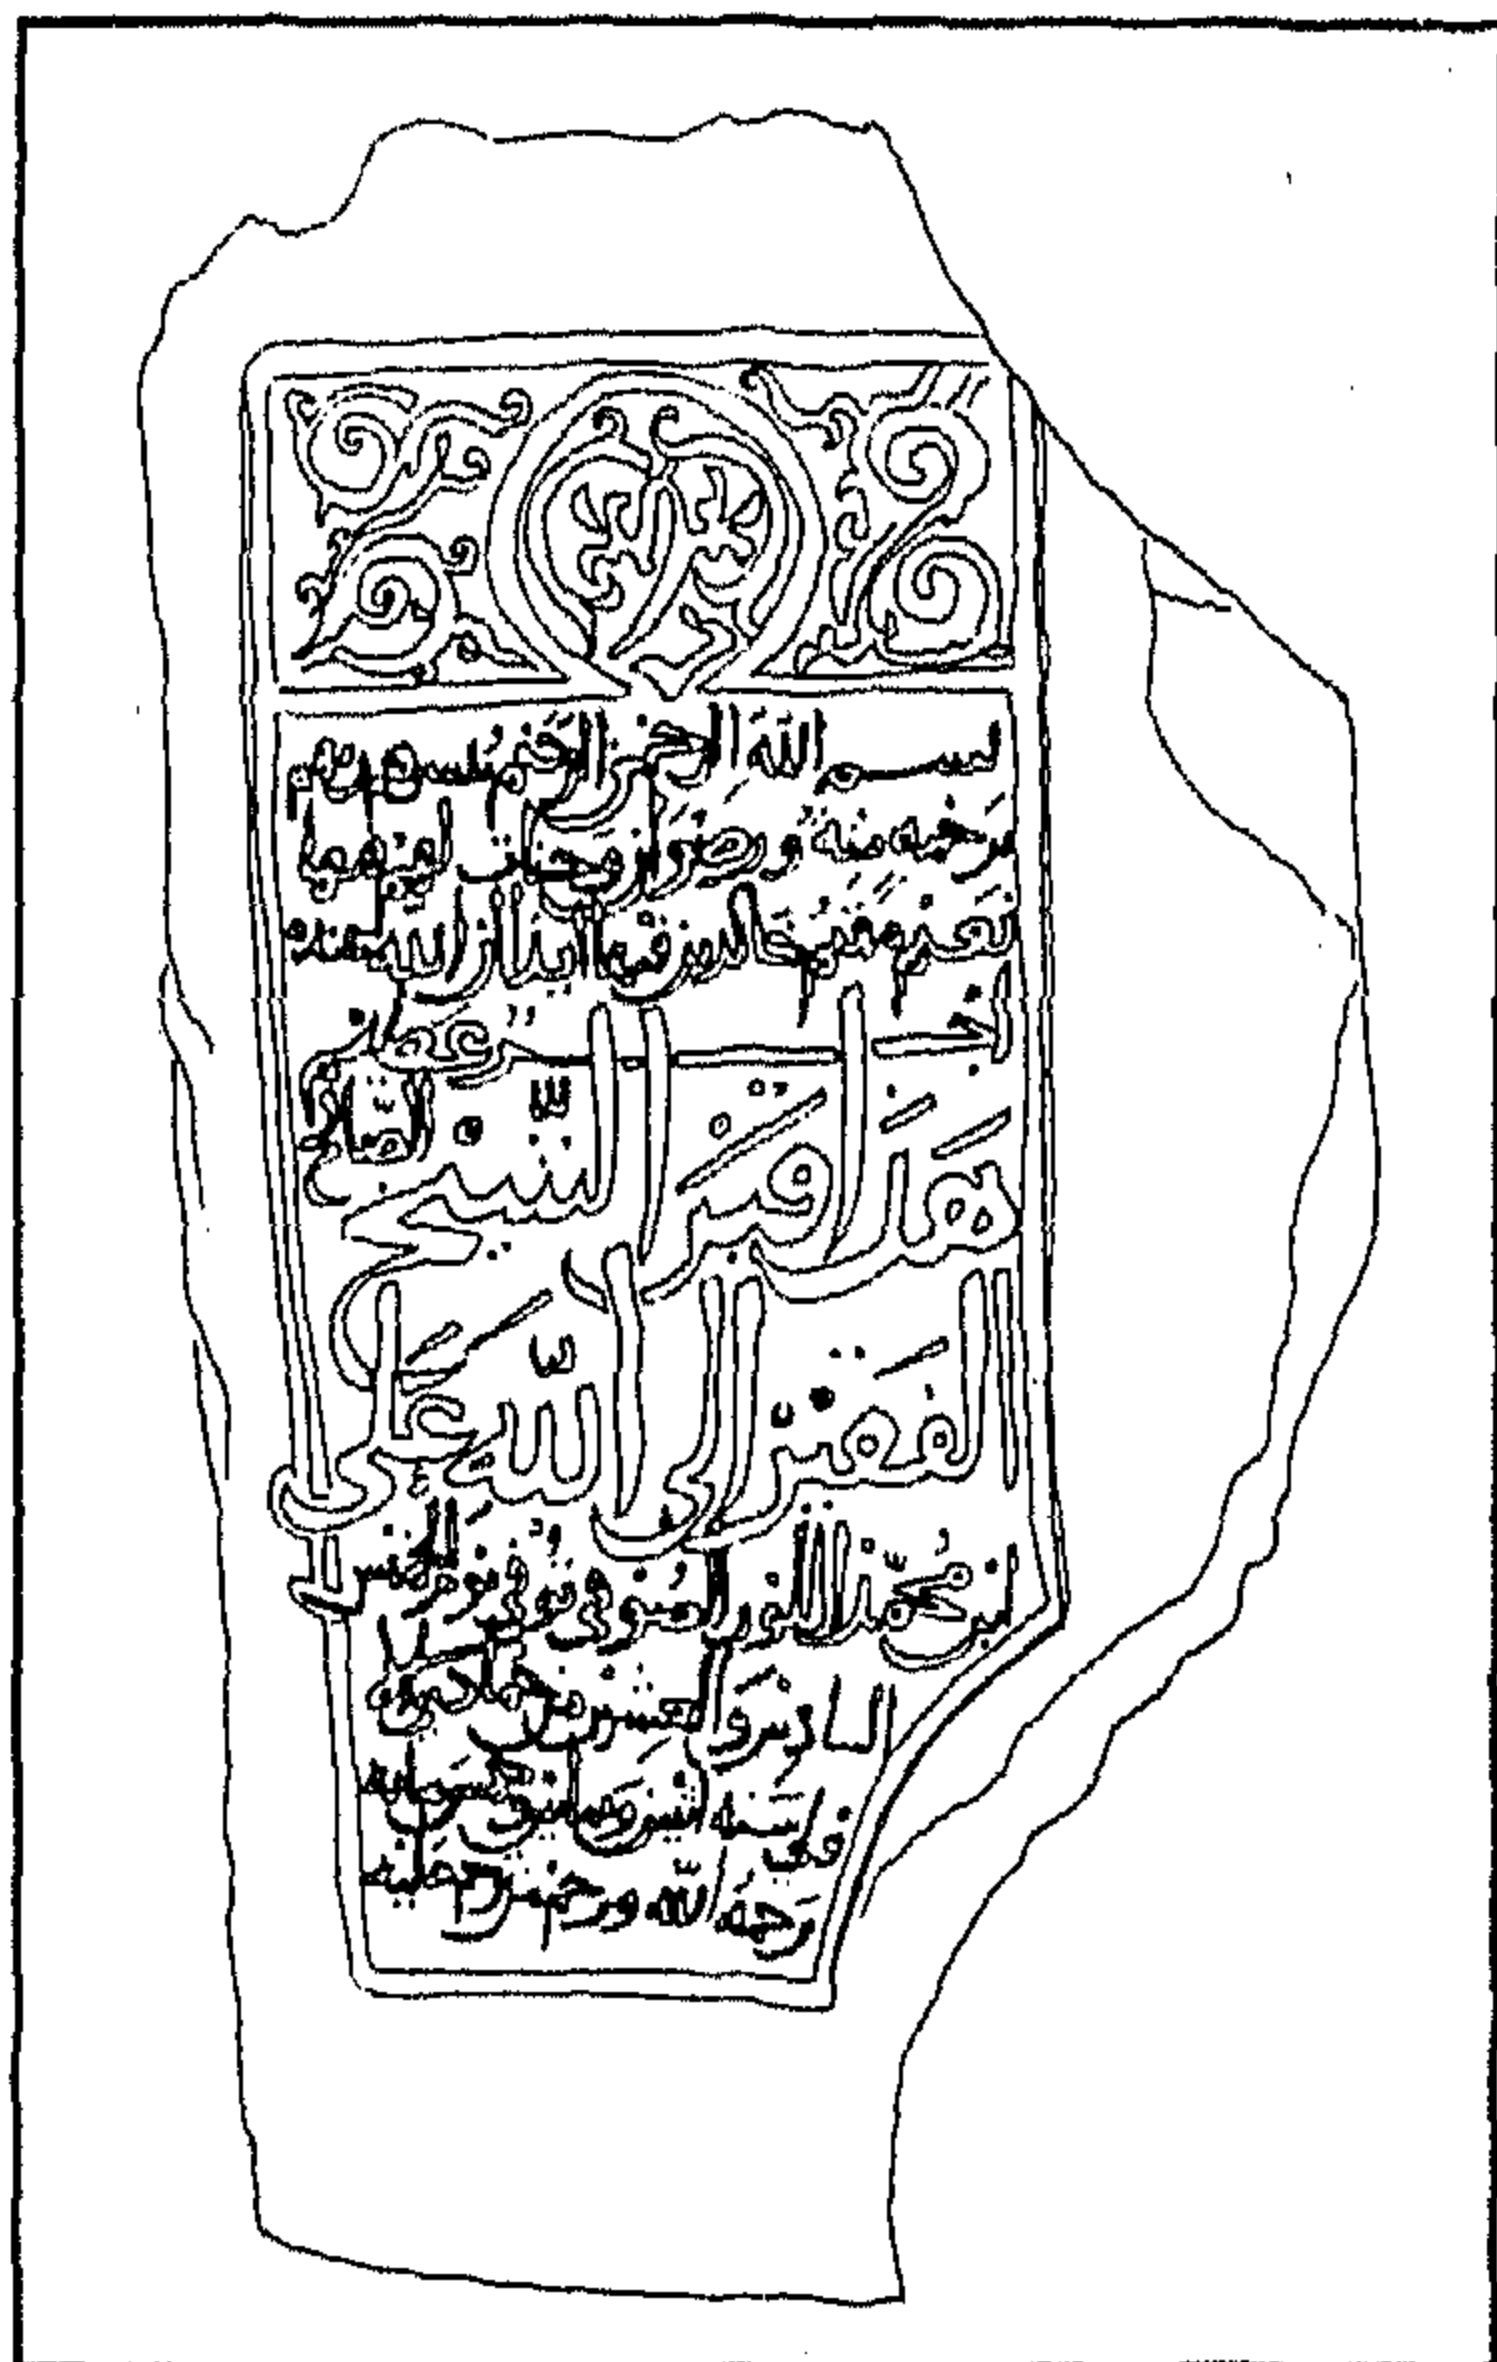 بسم الله الرحمن الرحيم يبشرهم ربهم
برحمة منه ورضوان وجنات لهم فيها
نعيم مقيم خالدين فيها أبدا إن الله عنده
أجر عظيم
هذا قبر الشيخ الصالح
الفقير إلى الله على
ابن محمد الصوفي توفي يوم الخميس
السادس والعشرين من جمادى
في سنة
رحمه الله ورحم من ترحم عليه